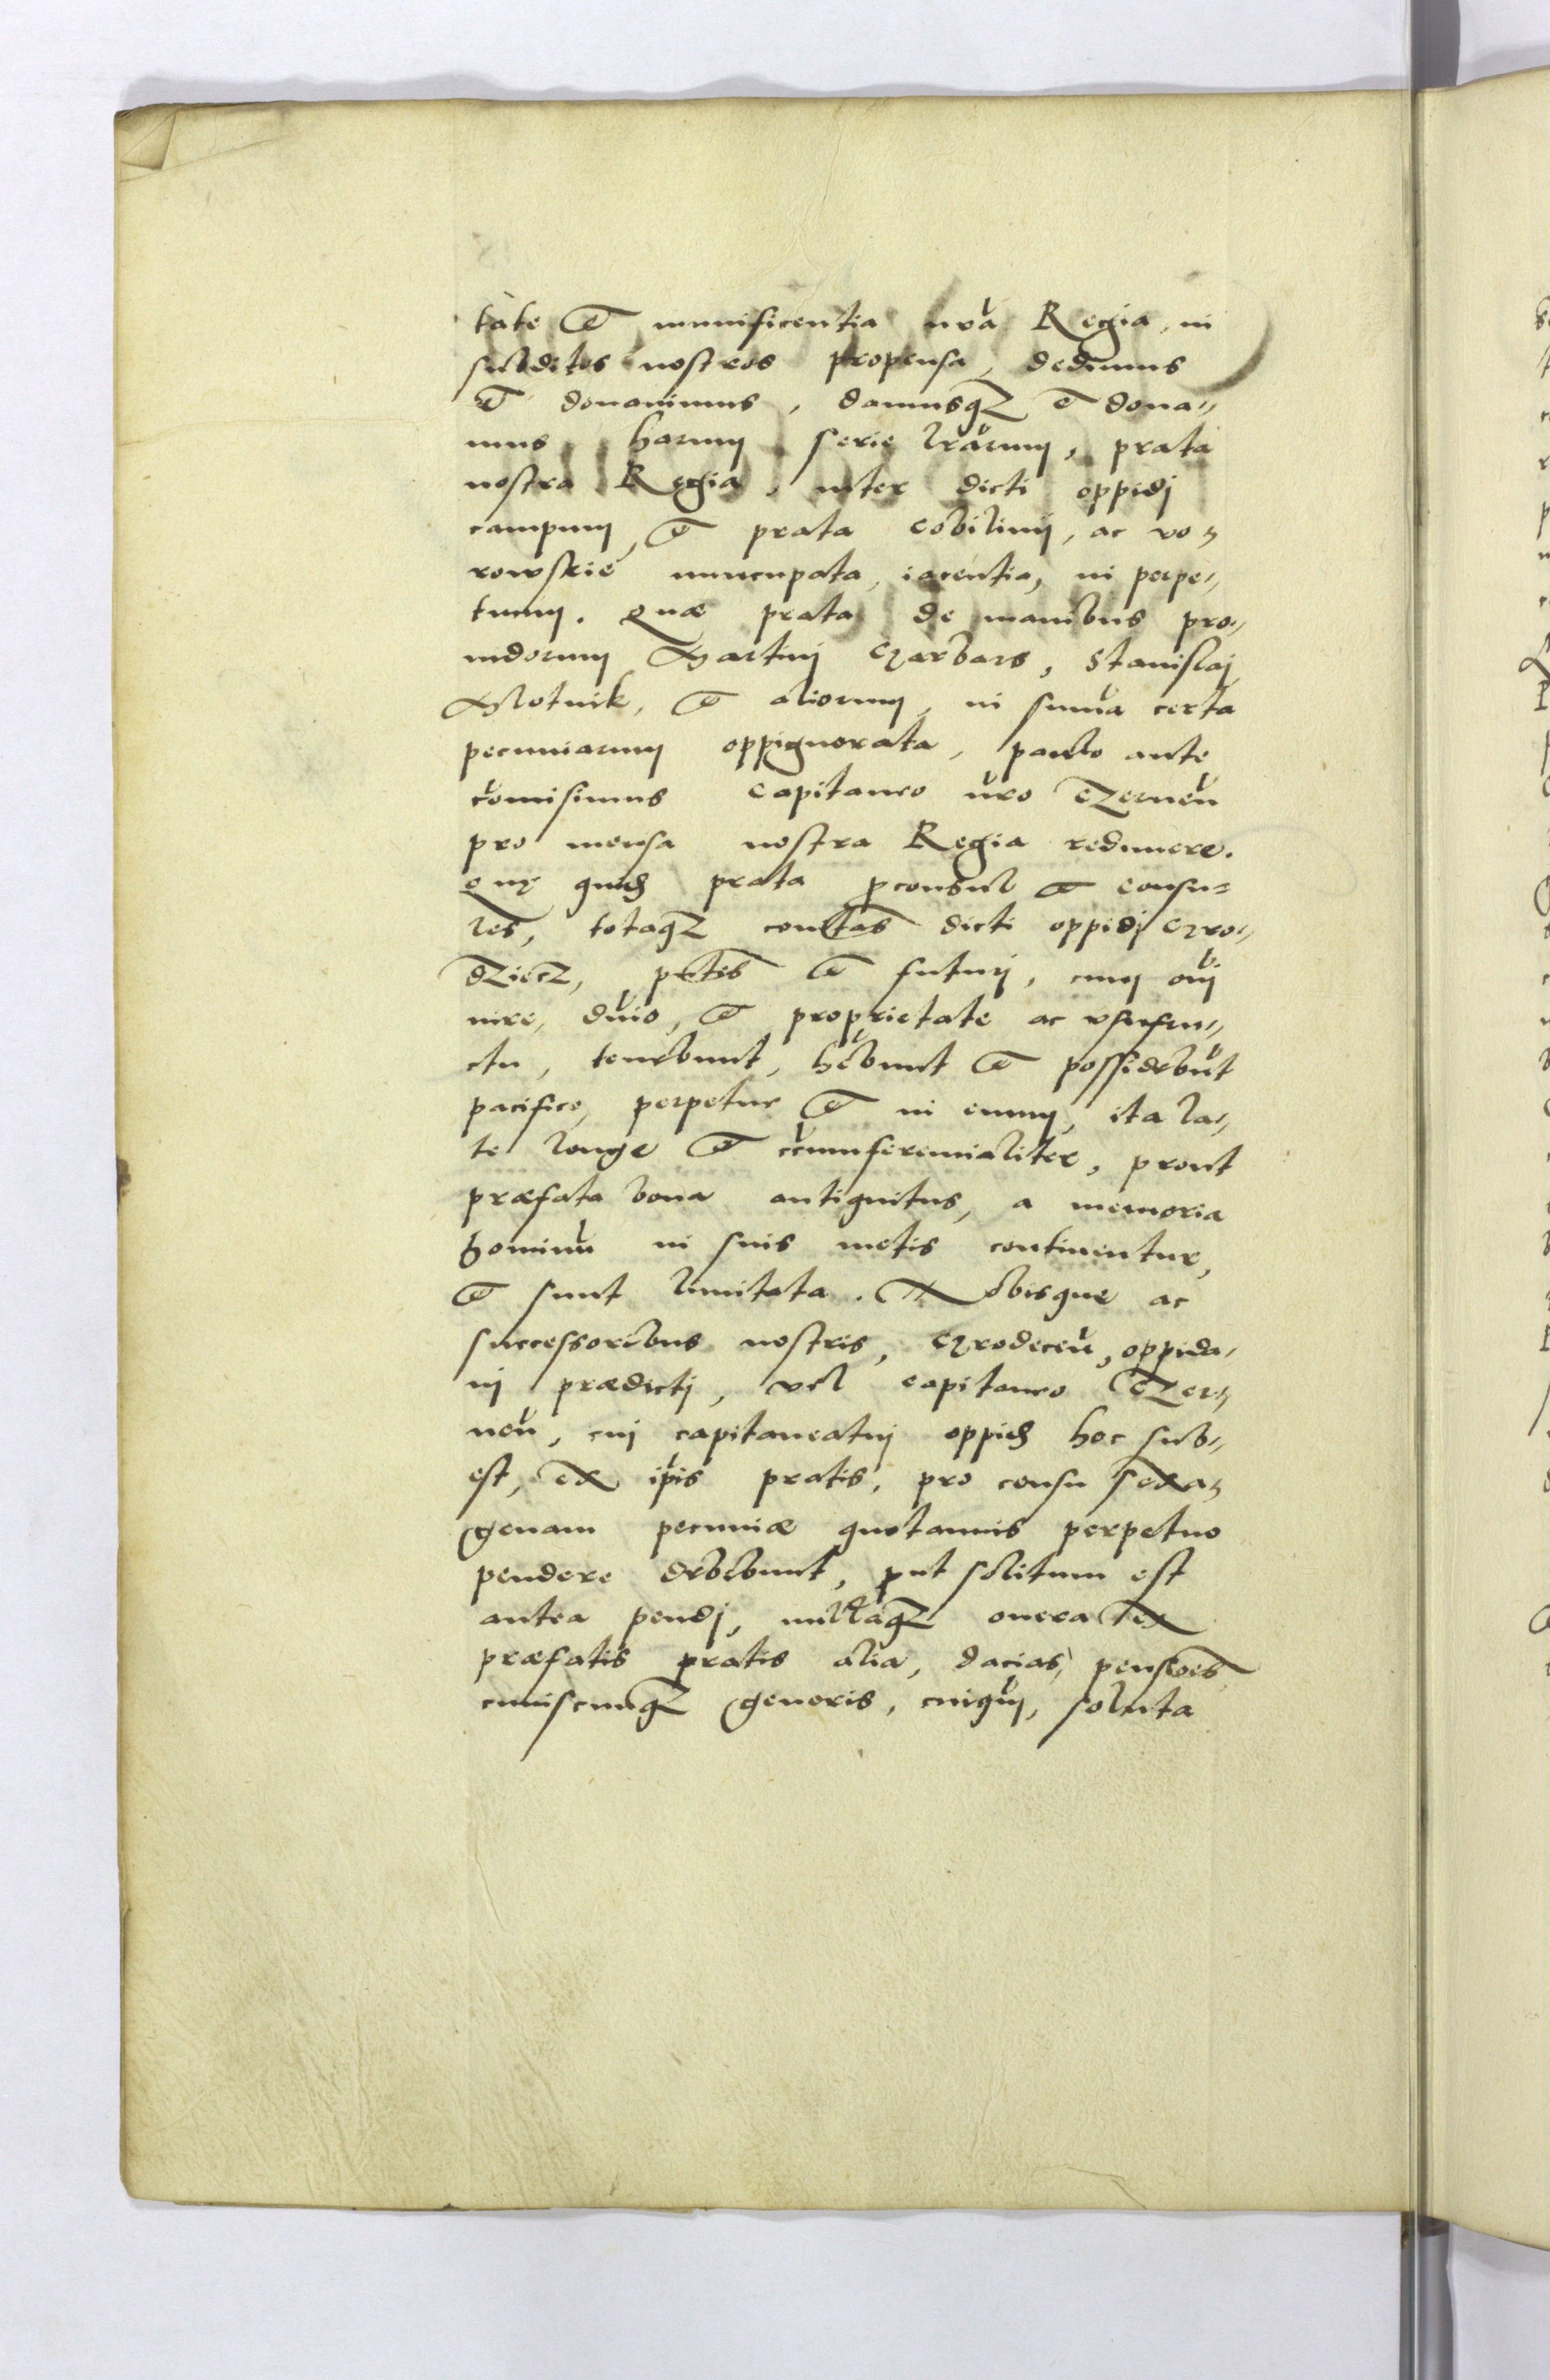 tate et munificentia nrã Regia, in
subditos nostros propensa, dedimus
et donauimus, damusq₃ et dona„
mus, harum serie lrãrum, prata
nostra Regia, inter dicti oppidj
campum, et prata Cobilinij, ac vo„
rowskie nuncupata, iacentia, in perpe„
tuum. Quæ prata de manibus pro„
uidorum Martinj Czarbars, Stanislaj
Mlotnik, et aliorum, in summa certa
pecuniarum oppignorata, paulo ante
cõmisimus Capitaneo nrõ Czerneñ
pro mensa nostra Regia redimere.
Quę quid prata p̱consul et Consu„
les, totaq₃ coitas dicti oppidj Czro„
dziecz, pñtes et futurj, cum oĩ
iure, dñio, et proprietate ac vsufru„
ctu, tenebunt, hẽbunt et possidebũt
pacifice, perpetue et in euum, ita la„
te longe et ccũmferencialiter, prout
præfata bona antiquitus, a memoria
hominũ in suis metis continentur,
et sunt limitata. Nobisque ac
successoribus nostris, Czrodeceñ, oppida„
nj prædictj, vel Capitaneo Czer„
neñ, cuj capitaneatuj oppid hoc sub„
est, ex ip̃is pratis, pro censu sexa„
genam pecuniæ quotannis perpetuo
pendere debebunt, p̱ut solitum est
antea pendj, nullaq₃ onera ex
præfatis pratis alia, dacias, pensiões
cuiuscunq₃ generis, cuiq̃, soluta